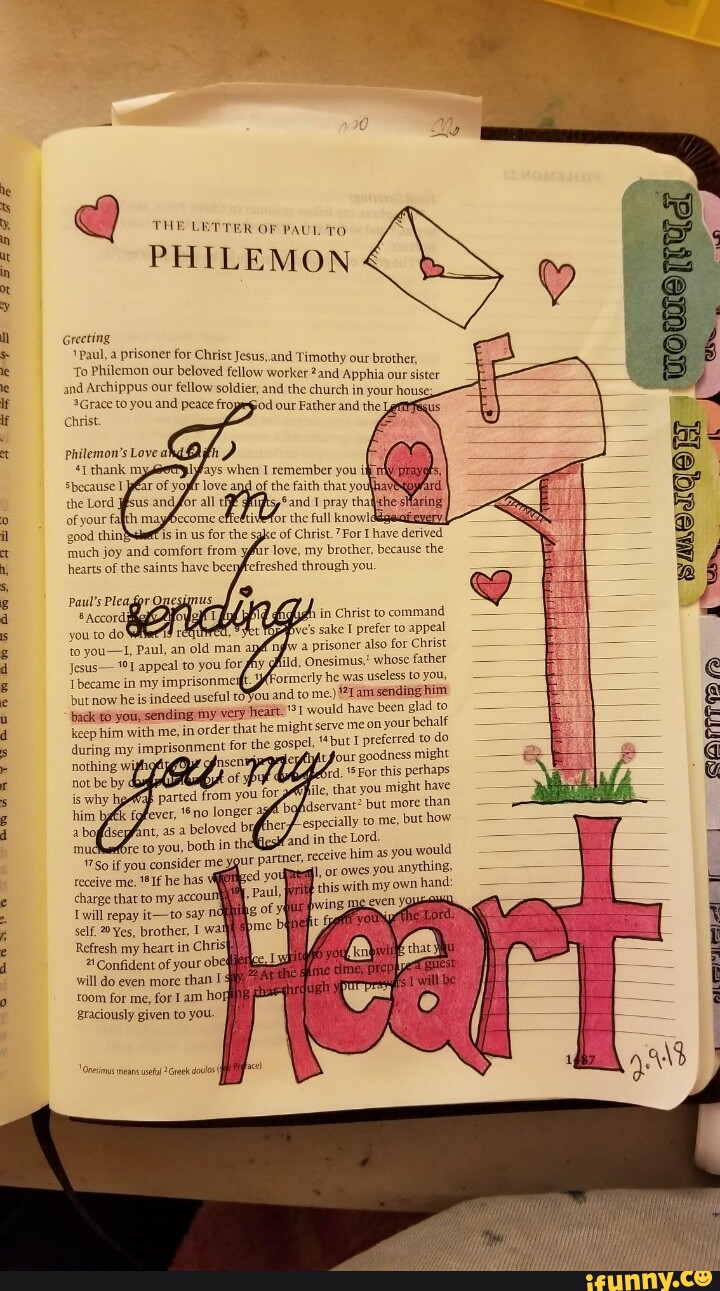 THE LETTER OF PAUL TO
PHILEMON
Greeting
1 Paul, a prisoner for Christ Jesus, and Timothy our brother,
To Philemon our beloved fellow worker 2 and Apphia our sister
and Archippus our fellow soldier, and the church in your house:
3 Grace to you and peace from God our Father and the Lord Jesus
Christ.
Philemon's Love and Faith
4 I thank my God always when I remember you in my prayers,
5 because I hear of your love and of the faith that you have toward
the Lord Jesus and for all the saints, 6 and I pray that the sharing
of your faith may become effective for the full knowledge of every
good thing that is in us for the sake of Christ. 7 For I have derived
much joy and comfort from your love, my brother, because the
hearts of the saints have been refreshed through you.
Paul's Plea for Onesimus
8 Accordingly, though I am bold enough in Christ to command
you to do what is required, 9 yet for love's sake I prefer to appeal
to you—I, Paul, an old man and now a prisoner also for Christ
Jesus— 10 I appeal to you for my child, Onesimus,1 whose father
I became in my imprisonment. 11 (Formerly he was useless to you,
but now he is indeed useful to you and to me.) 12 I am sending him
back to you, sending my very heart. 13 I would have been glad to
keep him with me, in order that he might serve me on your behalf
during my imprisonment for the gospel, 14 but I preferred to do
nothing without your consent in order that your goodness might
not be by compulsion but of your own accord. 15 For this perhaps
is why he was parted from you for a while, that you might have
him back forever, 16 no longer as a bondservant2 but more than
a bondservant, as a beloved brother—especially to me, but how
much more to you, both in the flesh and in the Lord.
17 So if you consider me your partner, receive him as you would
receive me. 18 If he has wronged you at all, or owes you anything,
charge that to my account. 19 I, Paul, write this with my own hand:
I will repay it—to say nothing of your owing me even your own
self. 20 Yes, brother, I want some benefit from you in the Lord.
Refresh my heart in Christ.
21 Confident of your obedience, I write to you, knowing that you
will do even more than I say. 22 At the same time, prepare a guest
room for me, for I am hoping that through your prayers I will be
graciously given to you.
1 Onesimus means useful 2 Greek doulos (see Preface)
1487
I'm
sending
you my
Heart
2.9.18
Philemon
Hebrews
James
ifunny.co